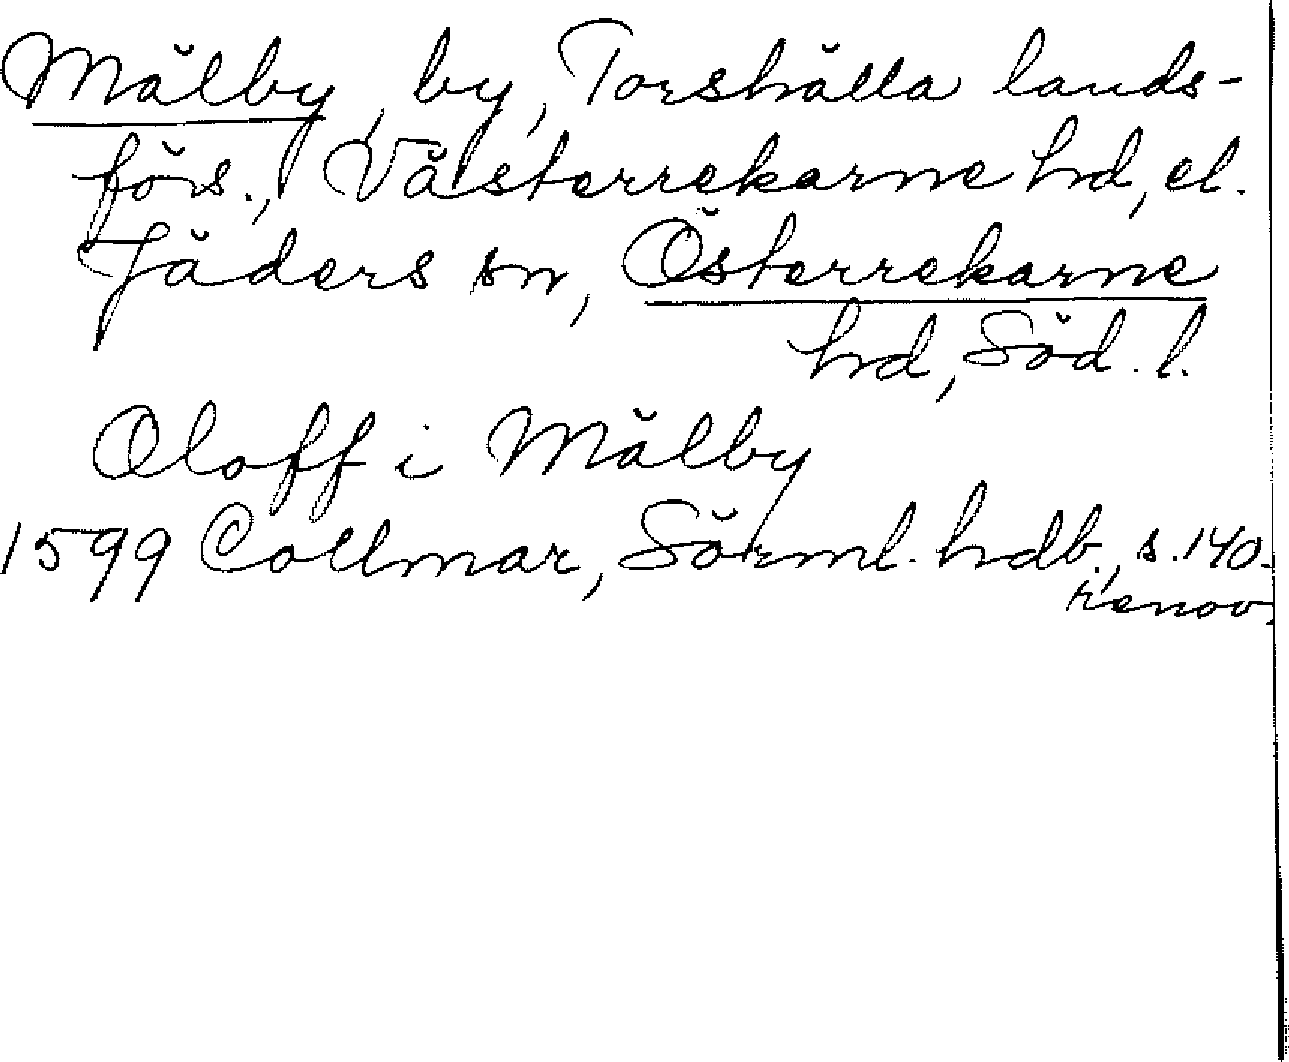 Mälby, by, Torshälla lands-
förs., Västerrekarne hd, el.
Jäders sn, Österrekarne
hd, Söd. l.
Oloff i Mälby
1599 Collmar, Sörml. hdb., s. 140.
renov.